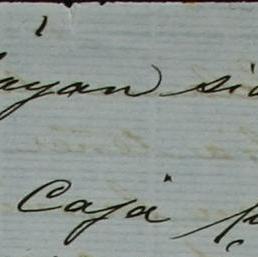 ayan si
Caja